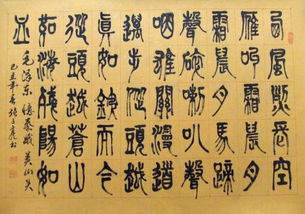 西風烈長空
雁叫霜晨月
霜晨月馬蹄
聲碎喇叭聲
咽雄關漫道
真如鐵而今
邁步從頭越
從頭越蒼山
如海殘陽如
血
毛泽东憶秦娥娄山关
己丑年